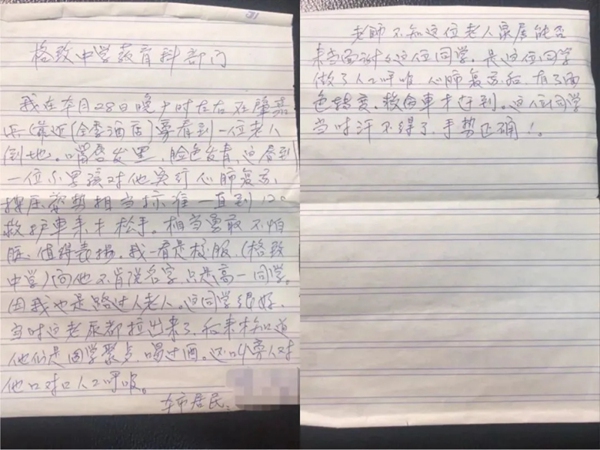 31
格致中学教育科部门
我在本月28日晚十时左右在肇嘉
浜(靠近(金香酒店)旁看到一位老人
倒地。嘴唇发黑,脸色发青,这看到
一位小男孩对他实行心肺复苏,
按压姿势相当标准一直到120
救护车来才松手。相当勇敢不怕
脏,值得表扬,我一看是校服(格致
中学)问他不肯说名字,只是高一同学,
因我也是路过人老人。这同学很好,
当时这老尿都拉出来了,后来才知道
他们是同学聚点喝过酒。还叫旁人对
他口对口人工呼吸。
本市居民:
老師不知这位老人家属能否
来当面谢々这位同学,是这位同学
做了人工呼吸 心肺复苏后,有了面
色转变,救的车才迁到。这位同学
当时汗不得了,手势正确!。